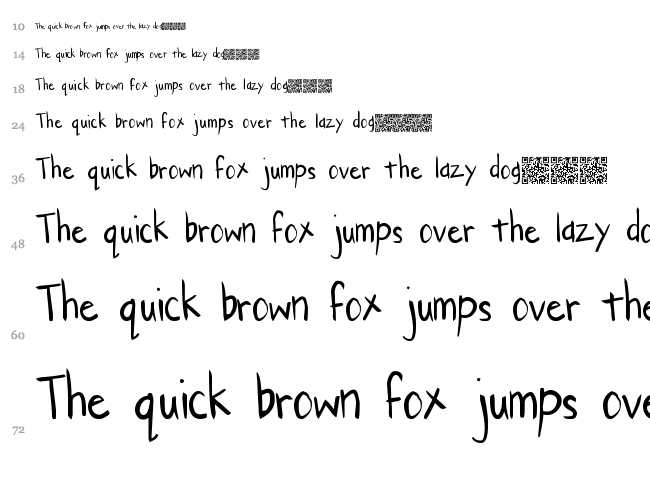 10 The quick brown fox jumps over the lazy dog
14 The quick brown fox jumps over the lazy dog
18 The quick brown fox jumps over the lazy dog
24 The quick brown fox jumps over the lazy dog
36 The quick brown fox jumps over the lazy dog
48 The quick brown fox jumps over the lazy do
60 The quick brown fox jumps over the
72 The quick brown fox jumps ove